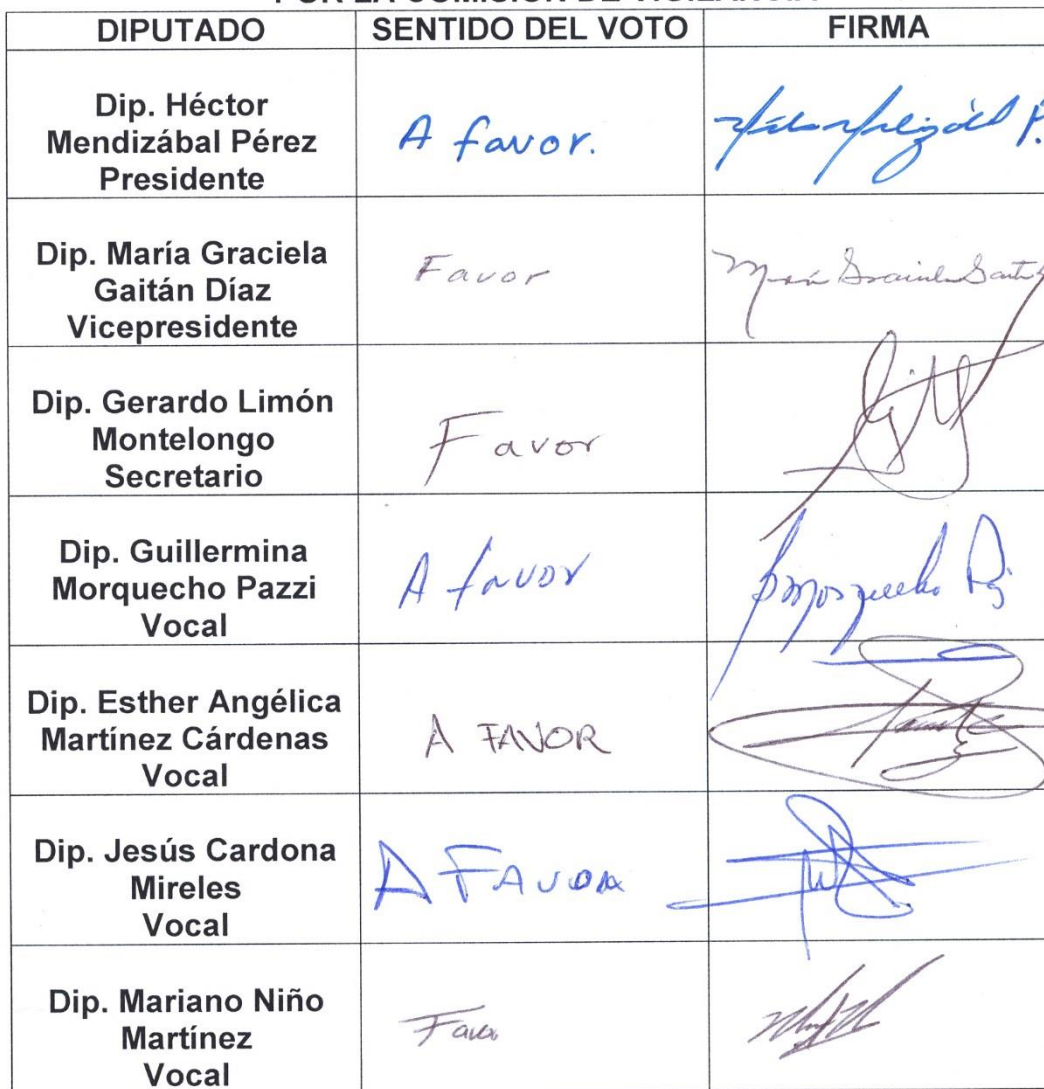 POR LA COMISIÓN DE VIGILANCIA
DIPUTADO SENTIDO DEL VOTO FIRMA
Dip. Héctor
Mendizábal Pérez
Presidente
A favor.
Dip. María Graciela
Gaitán Díaz
Vicepresidente
Favor
Dip. Gerardo Limón
Montelongo
Secretario
Favor
Dip. Guillermina
Morquecho Pazzi
Vocal
A favor
Dip. Esther Angélica
Martínez Cárdenas
Vocal
A FAVOR
Dip. Jesús Cardona
Mireles
Vocal
A FAVOR
Dip. Mariano Niño
Martínez
Vocal
Favor